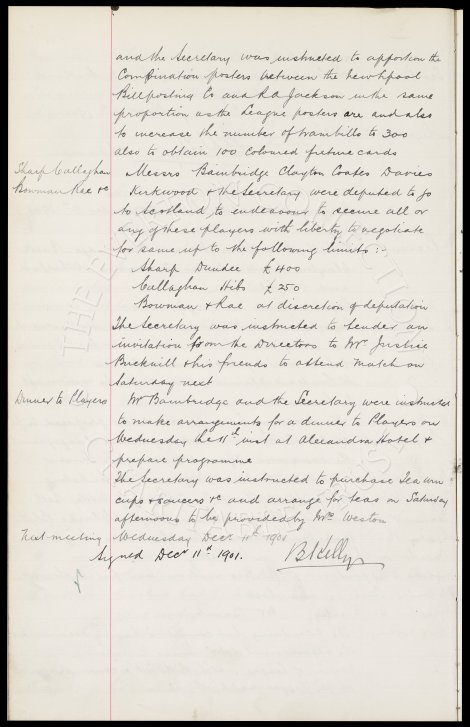 and the Secretary was instructed to apportion the
Combination posters between the New L'pool
Billposting Co and R A Jackson in the same
proportion as the League posters are and also
to increase the number of trambills to 300
also to obtain 100 Coloured fixture cards
Sharp Callaghan Messrs Bainbridge Clayton Coates Davies
Bowman Rae &c Kirkwood & the Secretary were deputed to go
to Scotland to endeavour to secure all or
any of these players with liberty to negotiate
for same up to the following limits:-
Sharp Dundee £400
Callaghan Hibs £250
Bowman & Rae at discretion of deputation
The Secretary was instructed to tender an
invitation from the Directors to Mr Justice
Bucknill & his friends to attend Match on
Saturday next
Dinner to Players Mr Bainbridge and the Secretary were instructed
to make arrangements for a dinner to Players on
Wednesday the 11th inst at Alexandra Hotel &
prepare programme
The Secretary was instructed to purchase Tea urn
cups & saucers &c and arrange for teas on Saturday
afternoons to be provided by Mrs Weston
Next meeting Wednesday Decr 11th 1901
Signed Decr 11th 1901. B Kelly